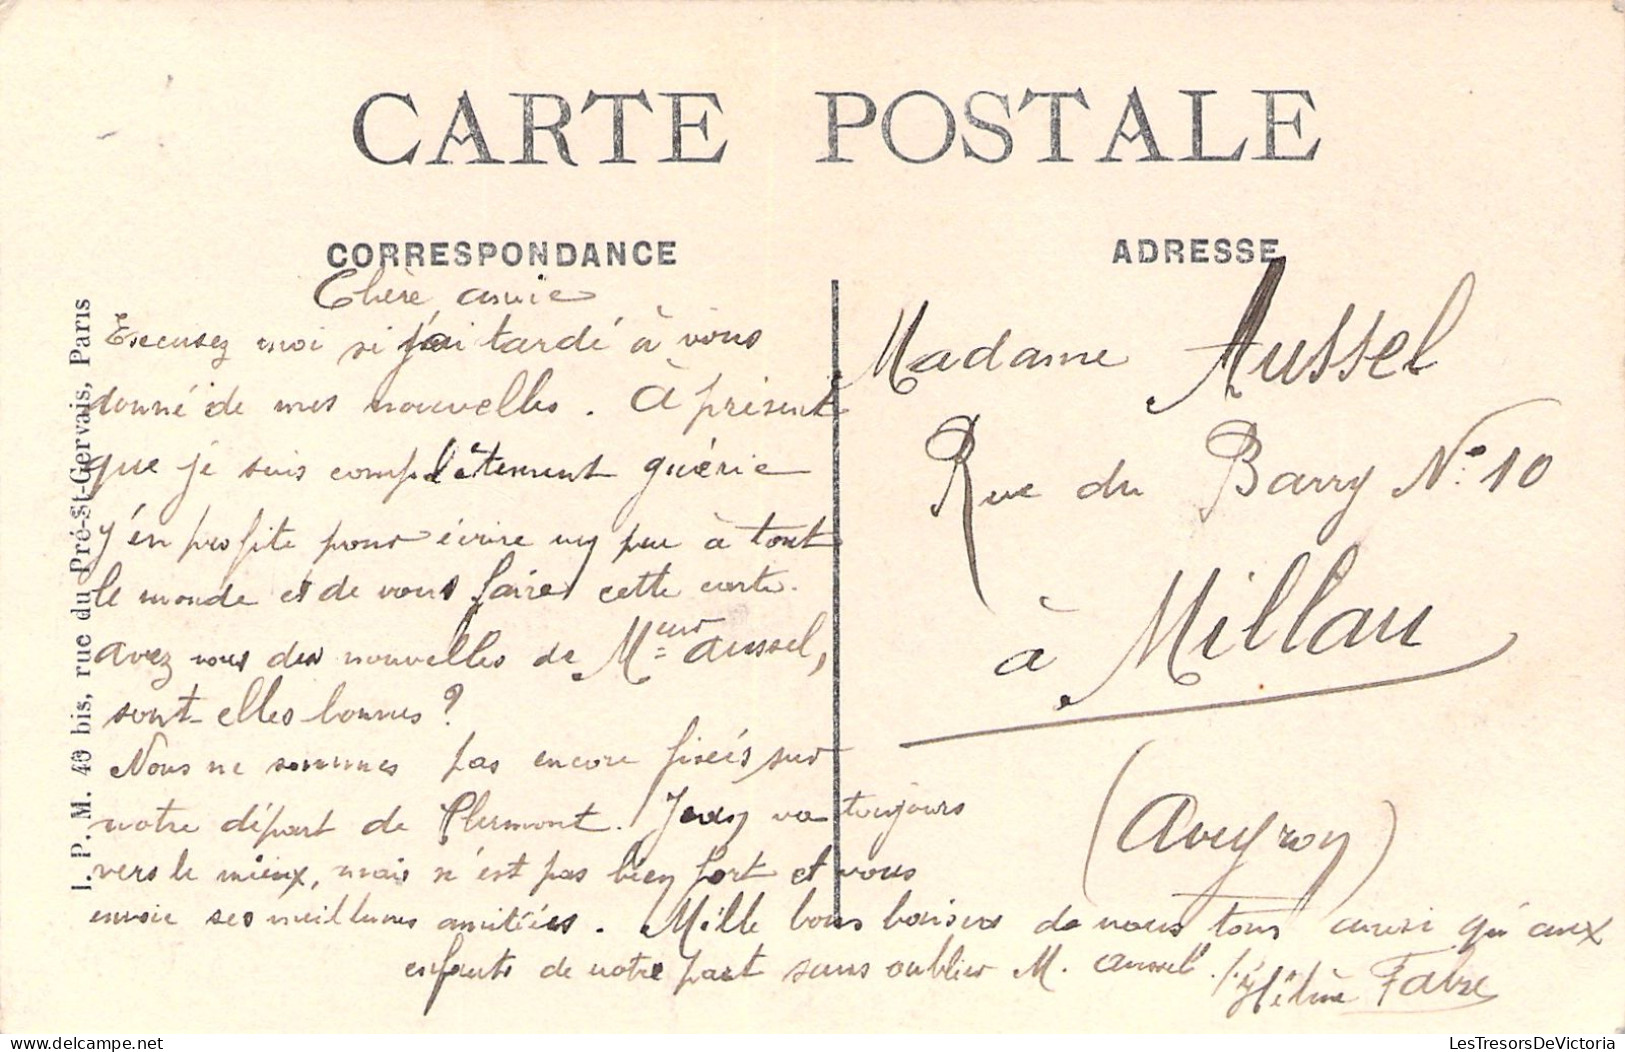 CARTE POSTALE
CORRESPONDANCE
Chère amie
Excusez moi si j'ai tardé à vous
donné de mes nouvelles. à présent
que je suis complètement guérie
j'en profite pour écrire un peu à tout
le monde et de vous faire cette carte.
avez vous des nouvelles de Meur aussel,
sont-elles bonnes ?
Nous ne sommes pas encore fixés sur
notre départ de Clermont. va toujours
vers le mieux, mais n'est pas bien fort et vous
envoie ses meilleures amitiées. Mille bons baisers de nous tous aussi qu'aux
enfants de notre part sans oublier M. aussel.
Hélène Fabre
ADRESSE
Madame Aussel
Rue du Barry No 10
à Millau
(Aveyron)
I. P. M. 40 bis, rue du Pré-St-Gervais, Paris
LesTresorsDeVictoria
delcampe.net